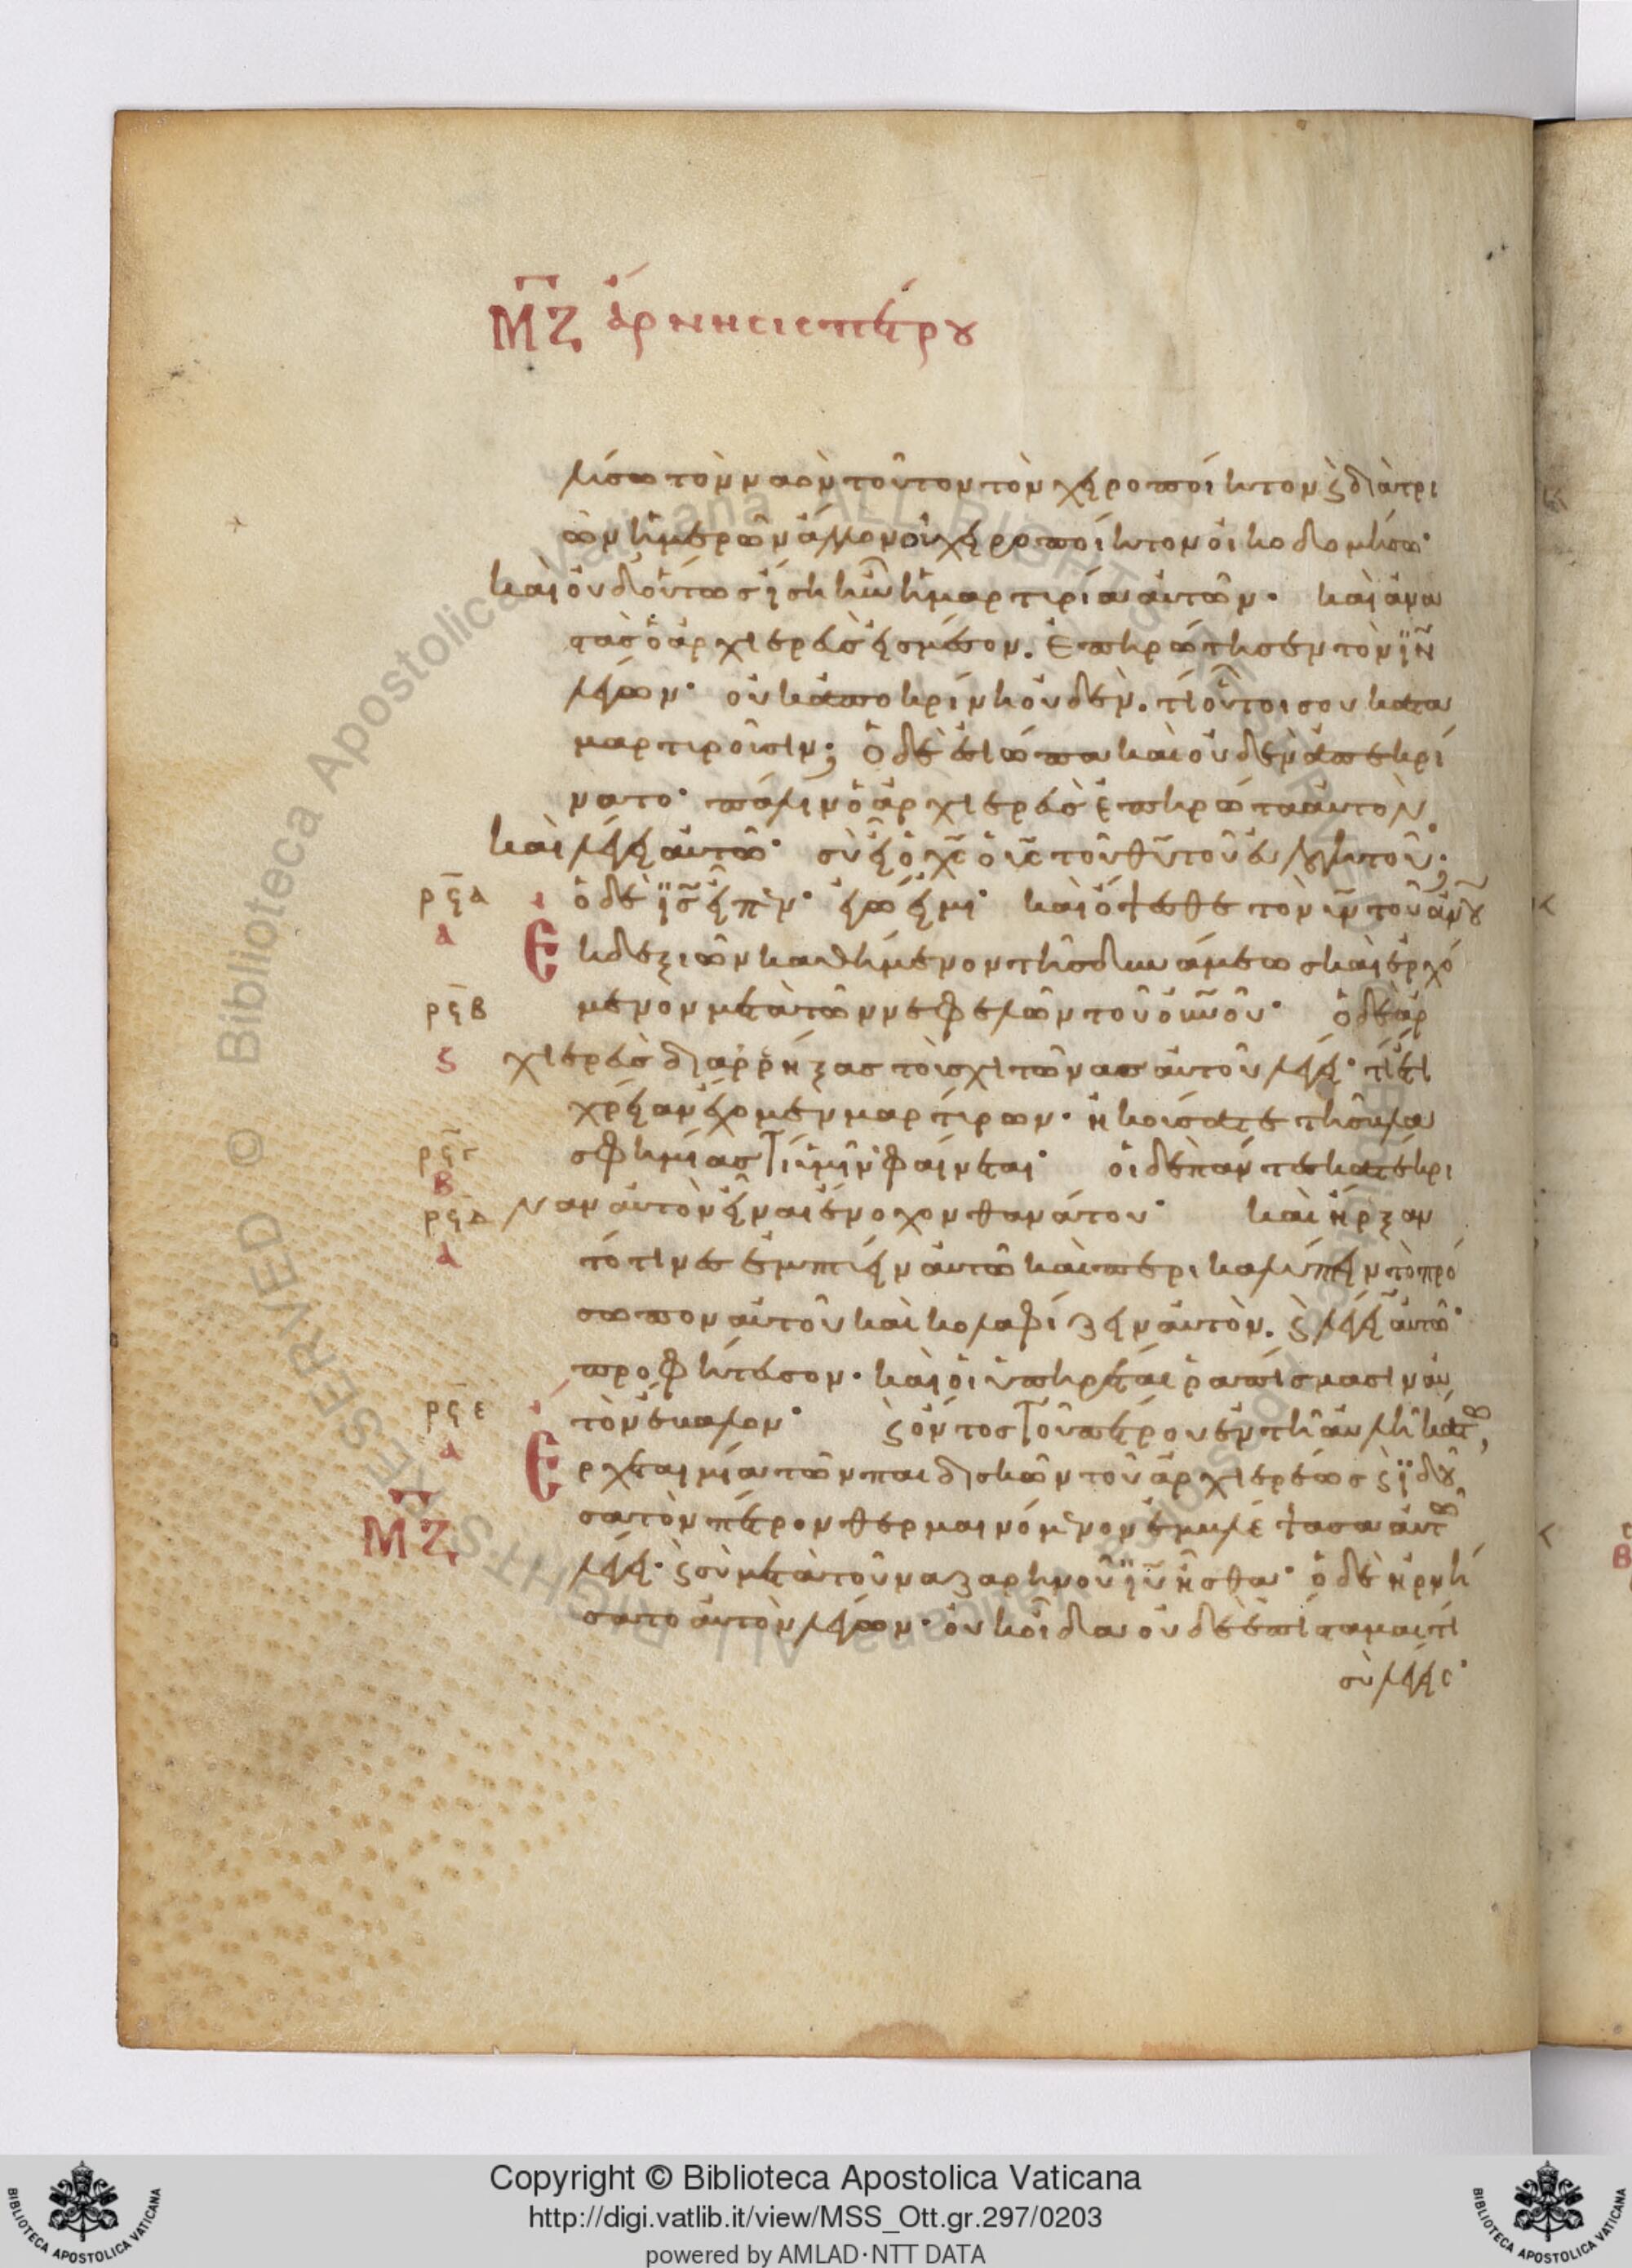 ΜΖ ἄρνησις πέτρου
λύσω τὸν ναὸν τοῦτον τὸν χειροποίητον ϗ διὰ τρι
ῶν ἡμερῶν ἄλλον οὐχειροποίητον οἰκοδομήσω·
καὶ οὐδὲ οὕτως ἴση ἦν ἡ μαρτυρία αὐτῶν· καὶ ἀνα
στὰς ὁ ἀρχιερεὺς εἰς μέσον. ἐπηρώτησεν τὸν ϊ̅ν̅
λέγων· οὐκ ἀποκρίνη οὐδὲν. τί οὗτοι σου κατα
μαρτυροῦσιν; ὁ δὲ ἐσιώπα καὶ οὐδὲν ἀπεκρί
νατο· πάλιν ὁ ἀρχιερεὺς ἐπηρώτα αὐτὸν
καὶ λέγει αὐτῶ· σὺ εἶ ὁ χ̅ς̅ ὁ υ̅ς̅ τοῦ θ̅υ̅ τοῦ εὐλογητοῦ;
ρϟα ὁ δὲ ϊ̅ς̅ εἶπεν· ἐγώ εἰμι· καὶ ὄψεσθε τὸν υ̅ν̅ τοῦ ἀνου
α Ἐκ δεξιῶν καθήμενον τῆς δυνάμεως καὶ ἐρχό
ρϟβ μενον μετὰ τῶν νεφελῶν τοῦ ουνοῦ· ὁ δὲ ἀρ
ς χιερεὺς διαρρήξας τοὺς χιτῶνας αὐτοῦ λέγει· τί ἔτι
χρείαν ἔχομεν μαρτύρων· ἠκούσατε τῆς βλα
ρϟγ σφημίας τί ὑμῖν φαίνεται· οἱ δὲ πάντες κατέκρι
β
ρϟδ ναν αὐτὸν εἶναι ἔνοχον θανάτου· καὶ ἤρξαν
α τό τινες ἐμπτύειν αὐτῶ καὶ περικαλύπτειν τὸ πρό
σωπον αὐτοῦ καὶ κολαφίζειν αὐτὸν. ϗ λέγειν αὐτῶ·
προφήτευσον· καὶ οἱ ὑπηρέται ῥαπίσμασιν αὐ
ρϟε τὸν ἔβαλον· ϗ ὄντος τοῦ πέτρου ἐν τῆ αὐλῆ κάτω,
α Ἔρχεται μία τῶν παιδισκῶν τοῦ ἀρχιερέως ϗ ϊδοῦ
ΜΖ σα τὸν πέτρον θερμαινόμενον ἐμβλέψασα αὐτῶ
λέγει· ϗ σὺ μετὰ τοῦ ναζαρηνοῦ ϊ̅υ̅ ἦσθα· ὁ δὲ ἠρνή
σατο αὐτὸν λέγων· οὐκ οἶδα οὐδὲ ἐπίσταμαι τί
σὺ λέγεις·
Copyright © Biblioteca Apostolica Vaticana
http://digi.vatlib.it/view/MSS_Ott.gr.297/0203
powered by AMLAD·NTT DATA